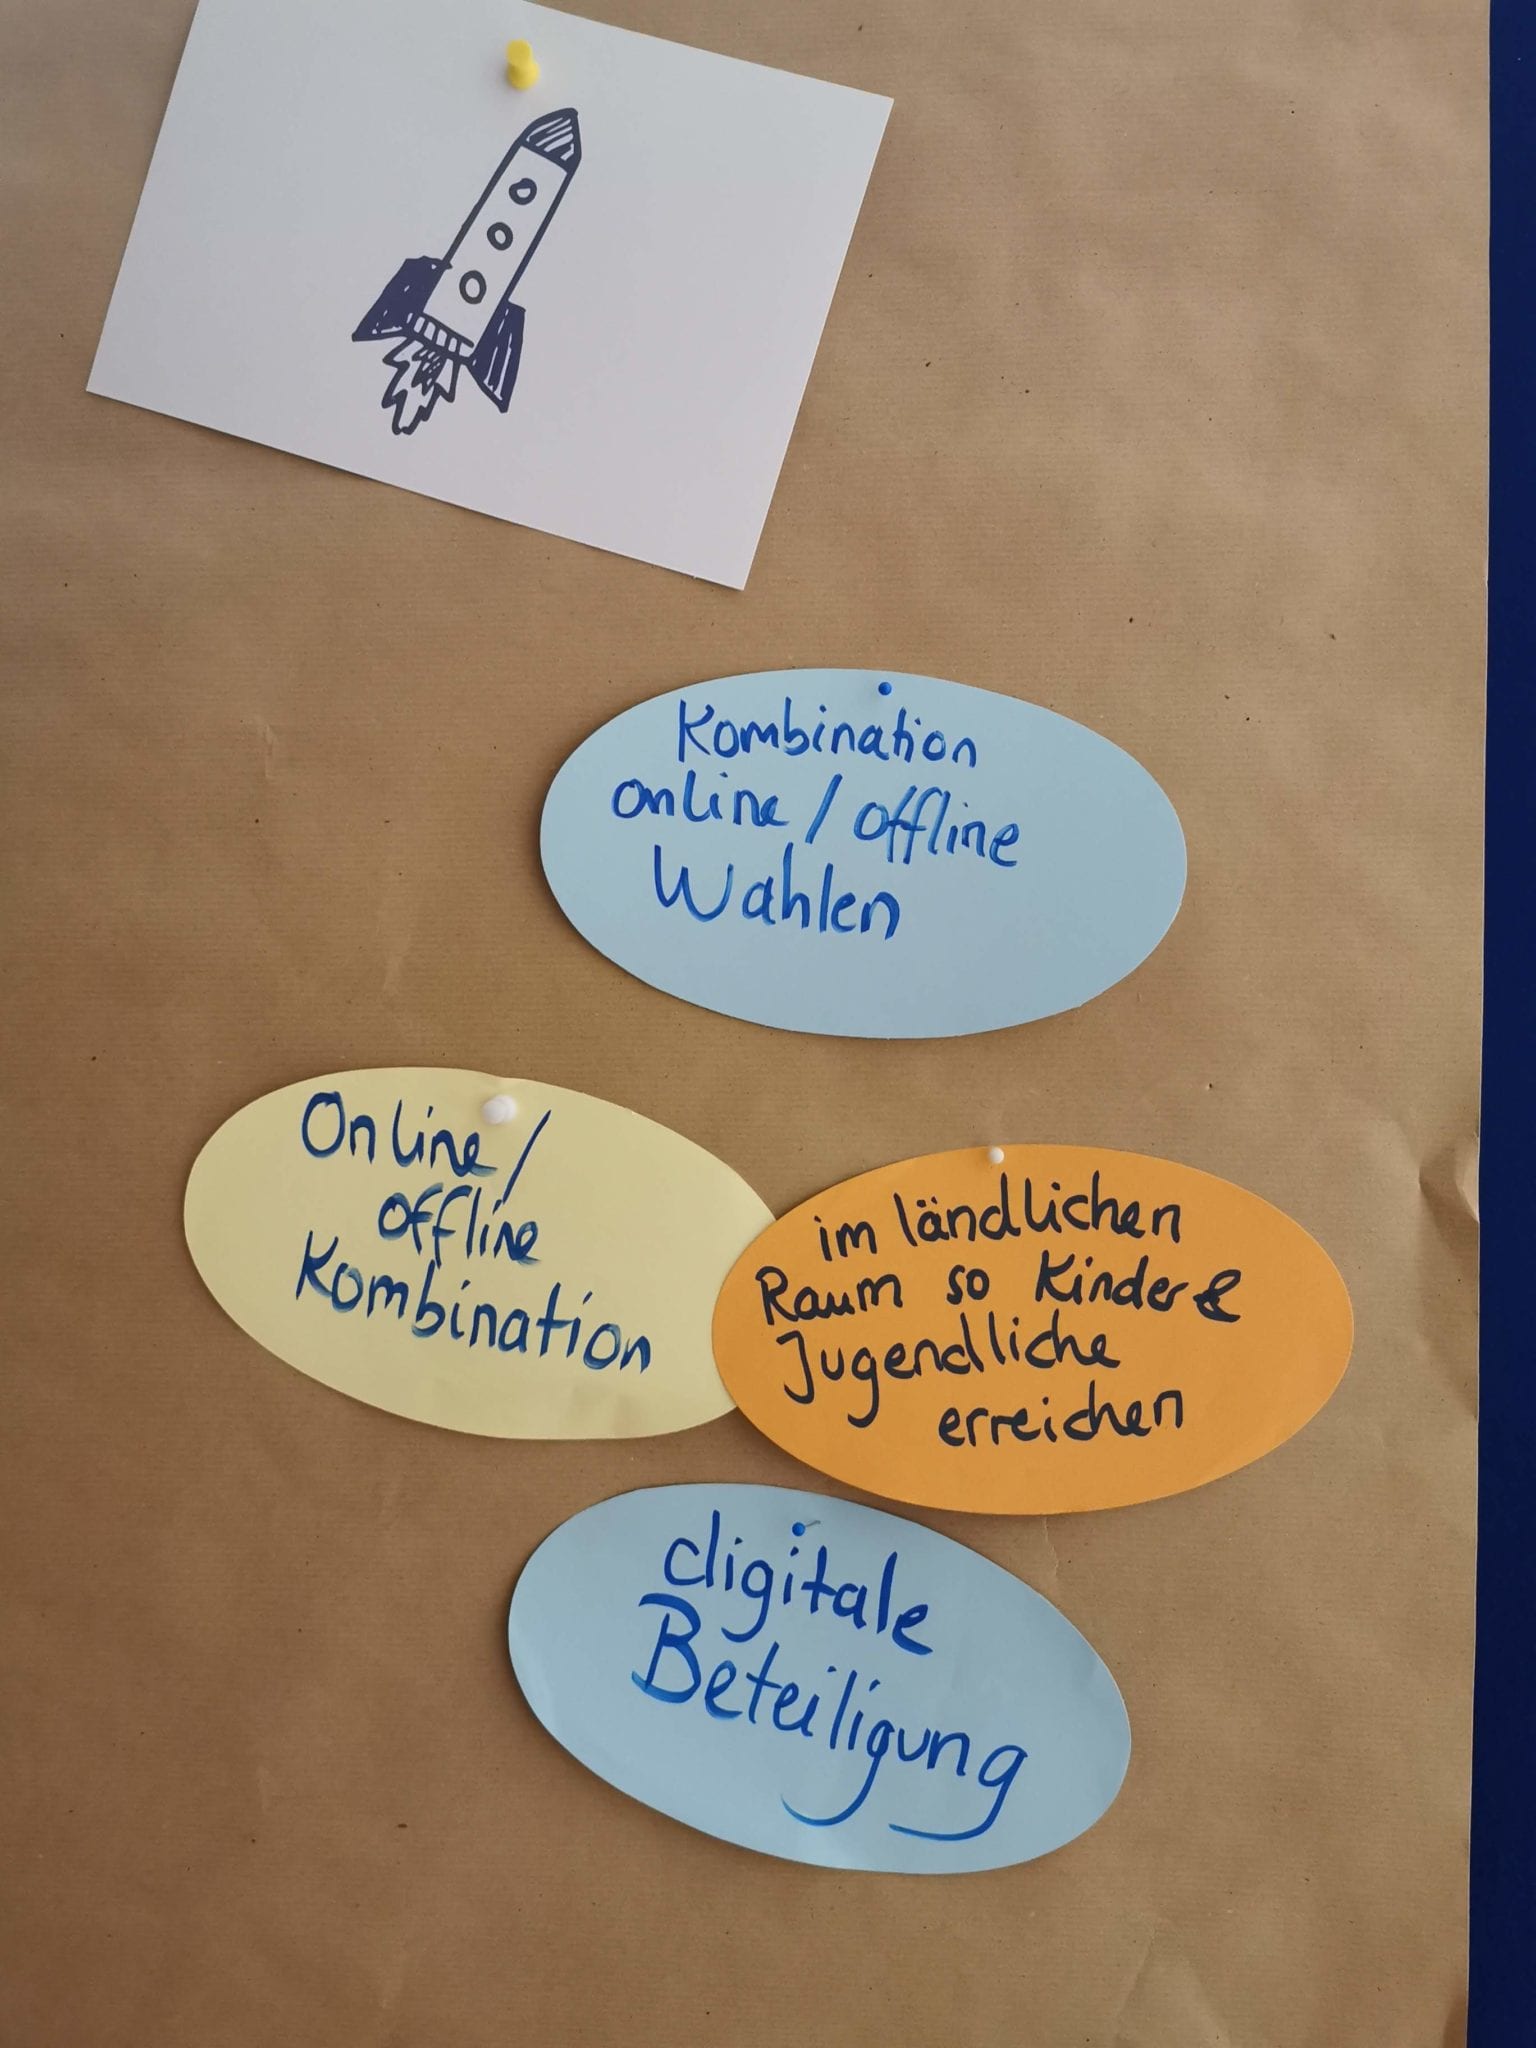 Kombination
online / offline
Wahlen
Online /
offline
Kombination
im ländlichen
Raum so Kinder &
Jugendliche
erreichen
digitale
Beteiligung